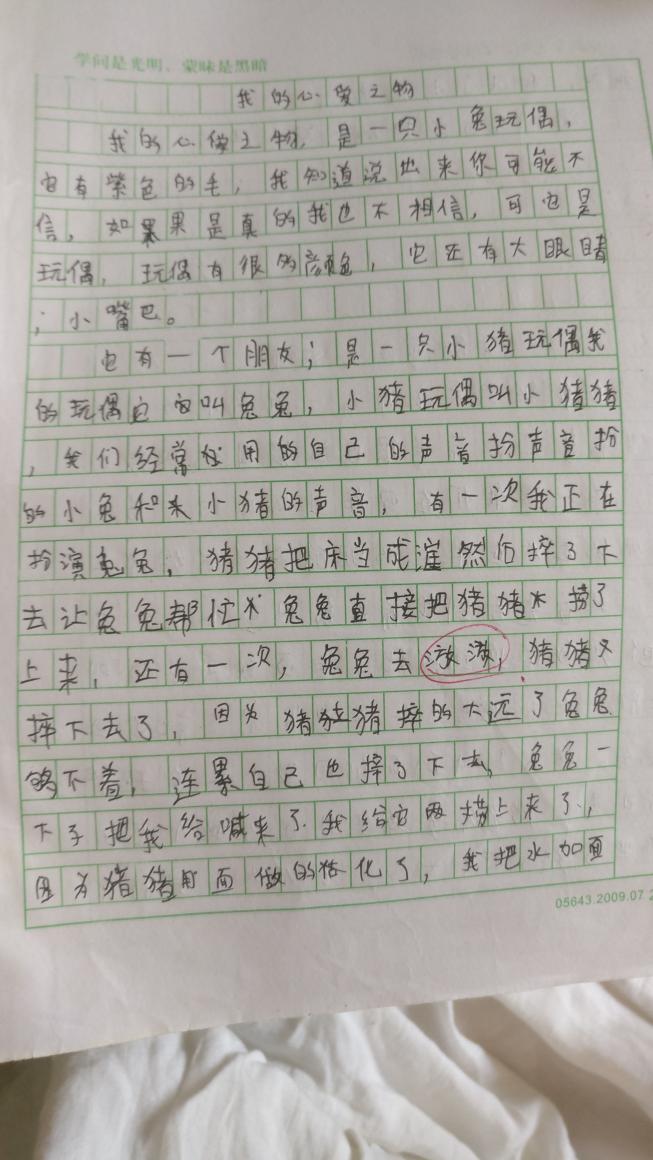 学问是光明，蒙昧是黑暗
我的心爱之物
我的心爱之物，是一只小兔玩偶，
它有紫色的毛，我知道说出来你可能不
信，如果是真的我也不相信，可它是
玩偶，玩偶有很多颜色，它还有大眼睛
；小嘴巴。
它有一个朋友；是一只小猪玩偶我
的玩偶它叫兔兔，小猪玩偶叫小猪猪
，我们经常用的自己的声音扮声音扮
的小兔和来小猪的声音，有一次我正在
扮演兔兔，猪猪把床当成然后摔了下
去让兔兔帮忙兔兔直接把猪猪捞了
上来，还有一次，兔兔去，猪猪又
摔下去了，因为猪猪猪摔的太远了兔兔
够不着，连累自己也摔了下去，兔兔一
下子把我给喊来了我给它两捞上来了，
因为猪猪用面做的化了，我把水加面
05643.2009.07 2